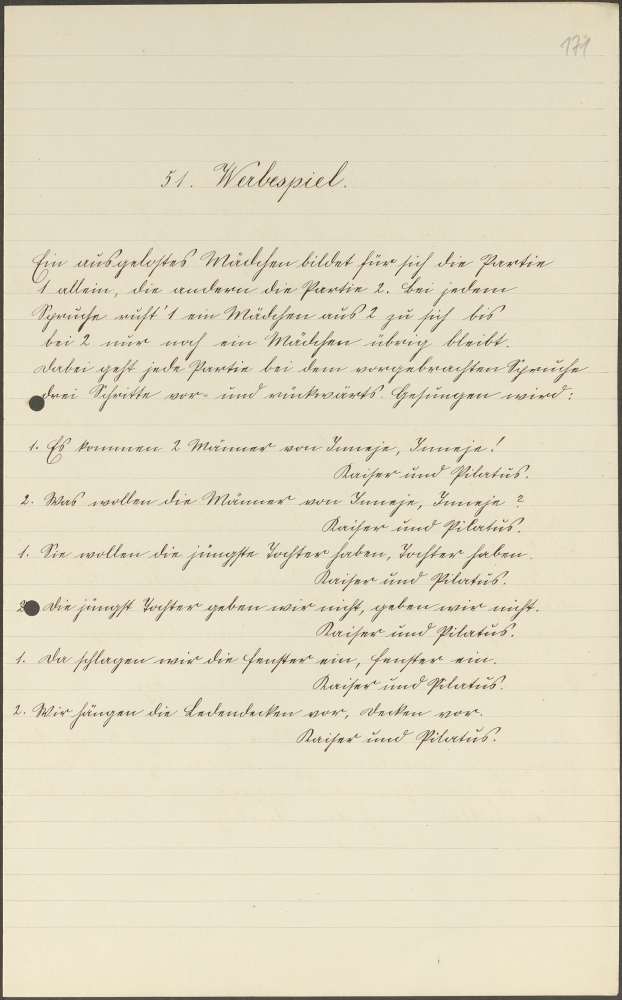 171
51. Werbespiel.
Ein ausgelostes Mädchen bildet für sich die Partie
1 allein, die andern die Partie 2. Bei jedem
Spruche ruft 1 ein Mädchen aus 2 zu sich bis
bei 2 nur noch ein Mädchen übrig bleibt.
Dabei geht jede Partie bei dem vorgebrachten Spruche
drei Schritte vor- und rückwärts. Gesungen wird:
1. Es kommen 2 Männer von Inneje, Inneje!
Kaiser und Pilatus.
2. Was wollen die Männer von Inneje, Inneje?
Kaiser und Pilatus.
1. Sie wollen die jüngste Tochter haben, Tochter haben.
Kaiser und Pilatus.
2. Die jüngst Tochter geben wir nicht, geben wir nicht.
Kaiser und Pilatus.
1. Da schlagen wir die Fenster ein, Fenster ein.
Kaiser und Pilatus.
2. Wir hängen die Bedendecken vor, Decken vor.
Kaiser und Pilatus.